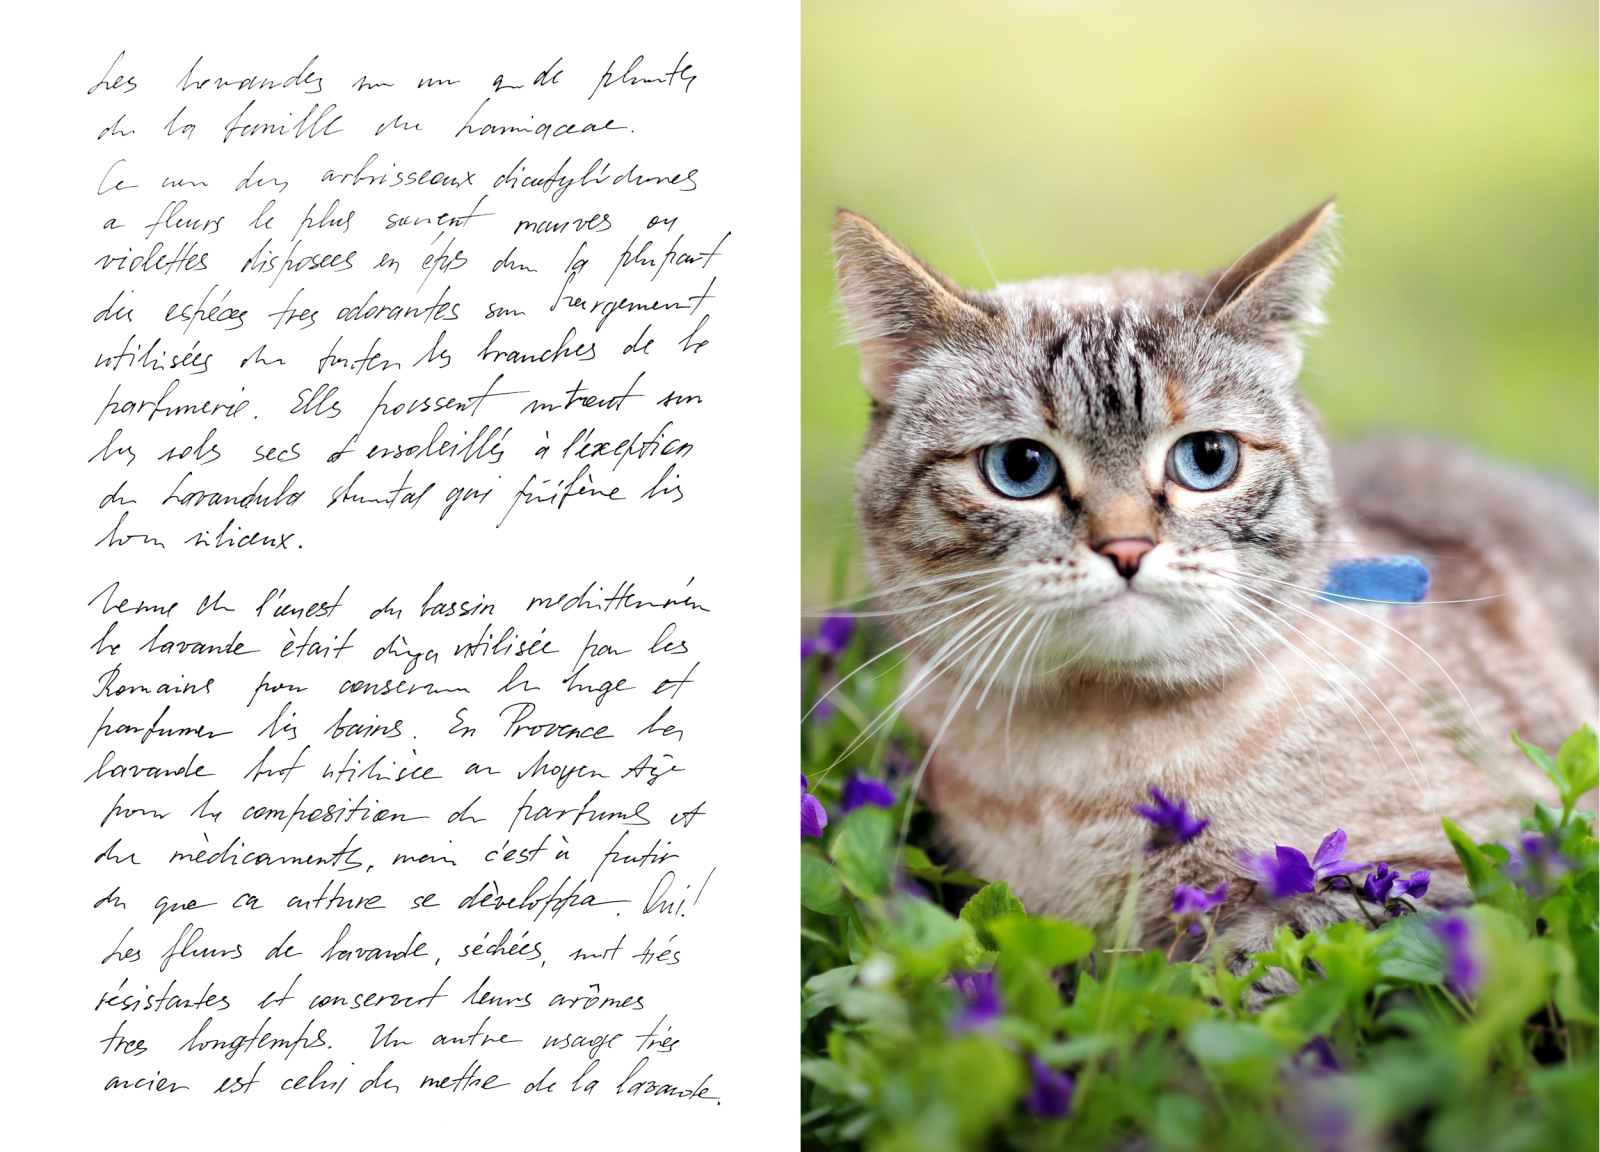 Les lavandes un de plantes
de la famille de Lamiaceae.
Ce des arbrisseaux dicotylédones
a fleurs le plus souvent mauves ou
violettes disposees en épis dans la plupart
des espéces tres odorantes largement
utilisées dans toutes les branches de la
parfumerie. Elles poussent surtout sur
les sols secs et ensoleillés à l'éxception
de Lavandula qui préfére les
siliceux.
Venue de l'ouest du bassin
la lavande ètait utilisée par les
Romains pour conserver le linge et
parfumer les bains. En Provence la
lavande fut utilisée au Moyen Age
pour la composition de parfums et
de mèdicaments, mais c'est à
que sa culture se dèveloppa. Oui!
Les fleurs de lavande, séchées, sont trés
résistantes et conservent leurs arômes
tres longtemps. Un autre usage trés
ancien est celui de mettre de la lavande.